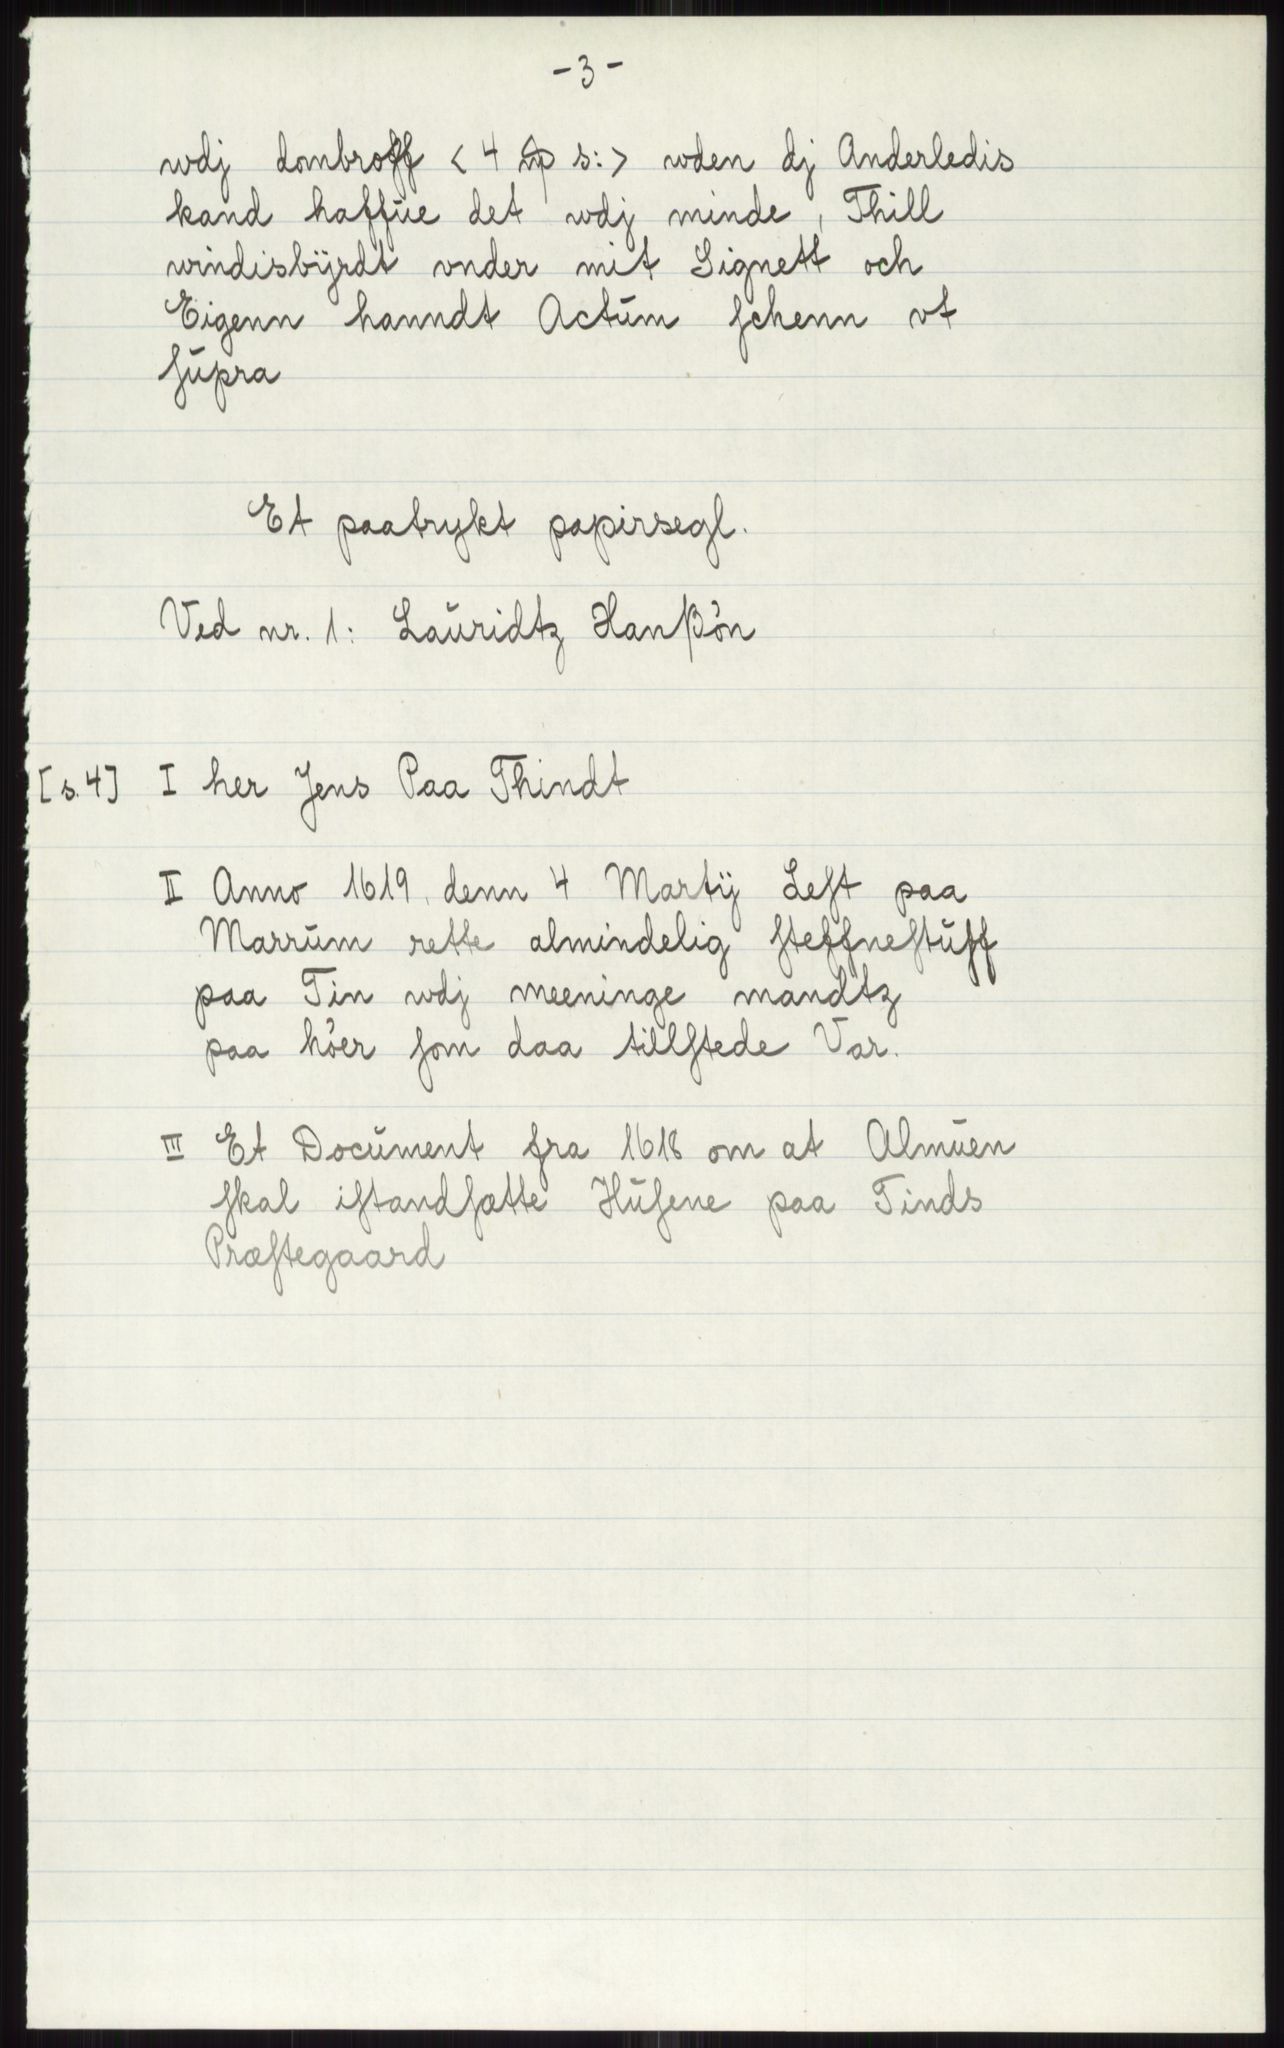 -3-
wdj dombroff < 4 s:> wden dj Anderledis
kand haffŭe det wdj minde, Thill
windisbÿrdt vnder mit Signett och
Eigenn hanndt Actŭm ſchenn vt
ſŭpra
Et paatrykt papirsegl.
Ved nr. 1: Laŭridtz Hanßòn
[s. 4] I her Jens Paa Thindt
II Anno 1619, denn 4 Martÿ Leſt paa
Marrŭm rette almindelig ſteffneſtŭff
paa Tin wdj meeninge mandtz
paa hòer ſom daa tillſtede Var.
III Et Docŭment fra 1618 om at Almŭen
ſkal iſtandſætte Hŭſene paa Tinds
Præſtegaard